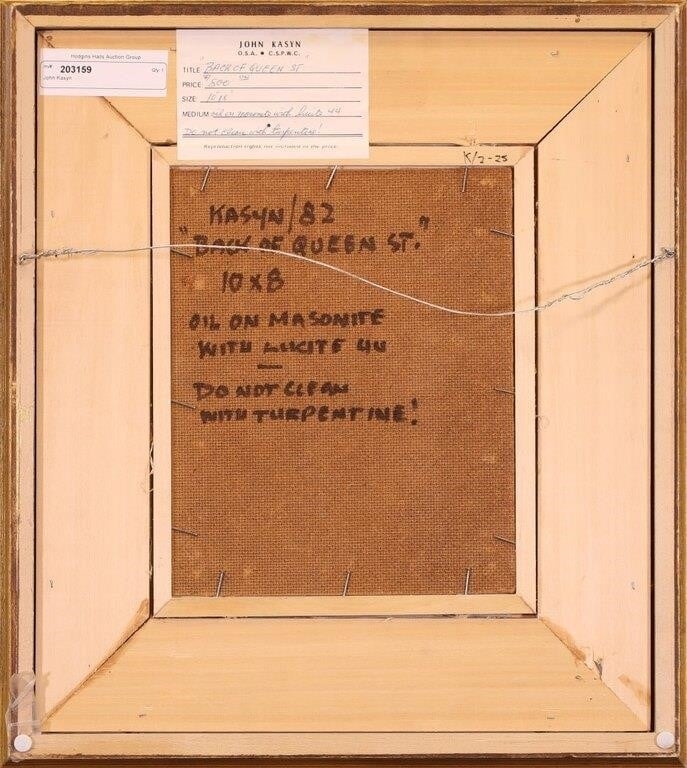 Hodgins Halls Auction Group
Inv# 203159 Qty: 1
John Kasyn
JOHN KASYN
O.S.A. • C.S.P.W.C.
TITLE "BACK OF QUEEN ST
PRICE $800
SIZE
MEDIUM oil on masonite with lucite 44
Do not clean with Turpentine!
Reproduction rights not included in the price.
K/2-25
KASYN/82
"BACK OF QUEEN ST."
10 x 8
OIL ON MASONITE
WITH LUCITE 44
DO NOT CLEAN
WITH TURPENTINE!